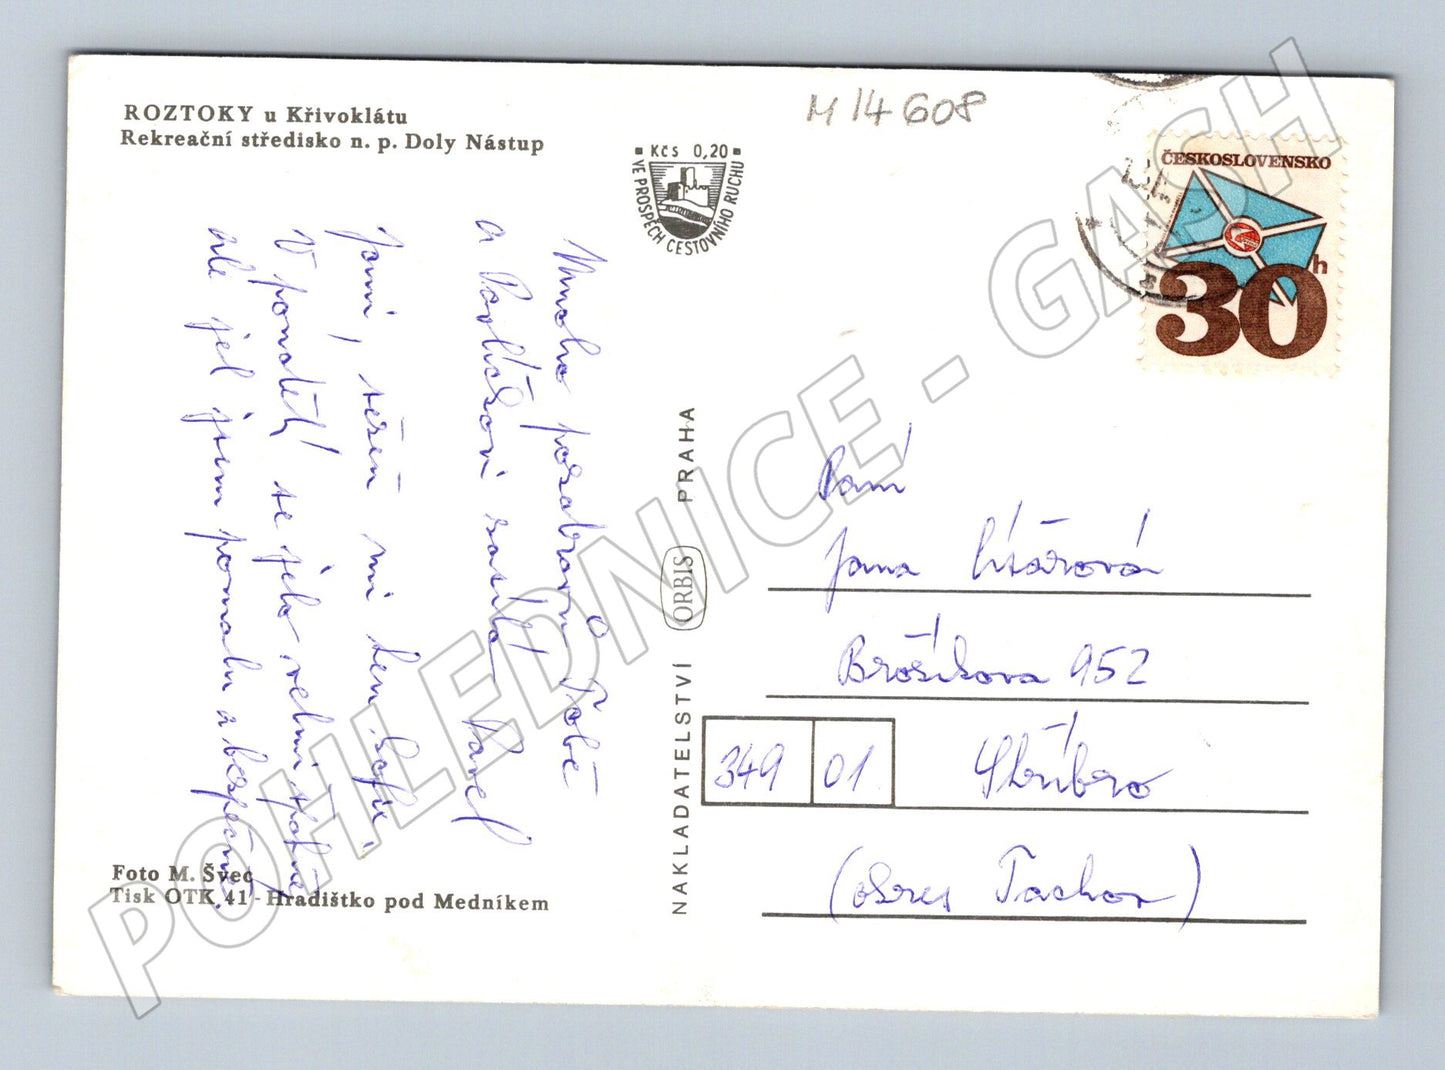 ROZTOKY u Křivoklátu
Rekreační středisko n. p. Doly Nástup
M 14 608
Kčs 0,20
VE PROSPĚCH CESTOVNÍHO RUCHU
ČESKOSLOVENSKO
30h
Mnoho pozdravů Tobě
a Pavlíčkovi zasílá Pavel
Jani, těšen mi
V pondělí se jelo velmi špatně
ale jel jsem pomalu a bezpečně.
Foto M. Švec
Tisk OTK, 41 - Hradištko pod Medníkem
NAKLADATELSTVÍ ORBIS PRAHA
Paní
Jana
Brožíkova 952
349 01 Stříbro
(okres Tachov)
POHLEDNICE - GASH